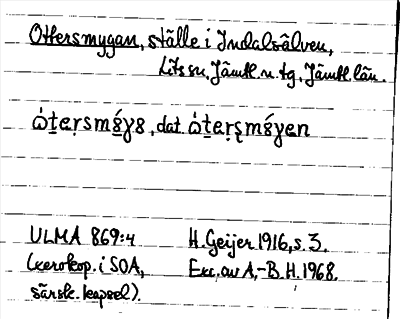 Ottersmygan, ställe i Indalsälven,
Lits sn, Jämtl. n. tg, Jämtl. län.
dat.
ULMA 869:4 H. Geijer 1916, s. 3.
(xerokop. i SOA, Exc. av A.-B. H. 1968.
särsk. kapsel).